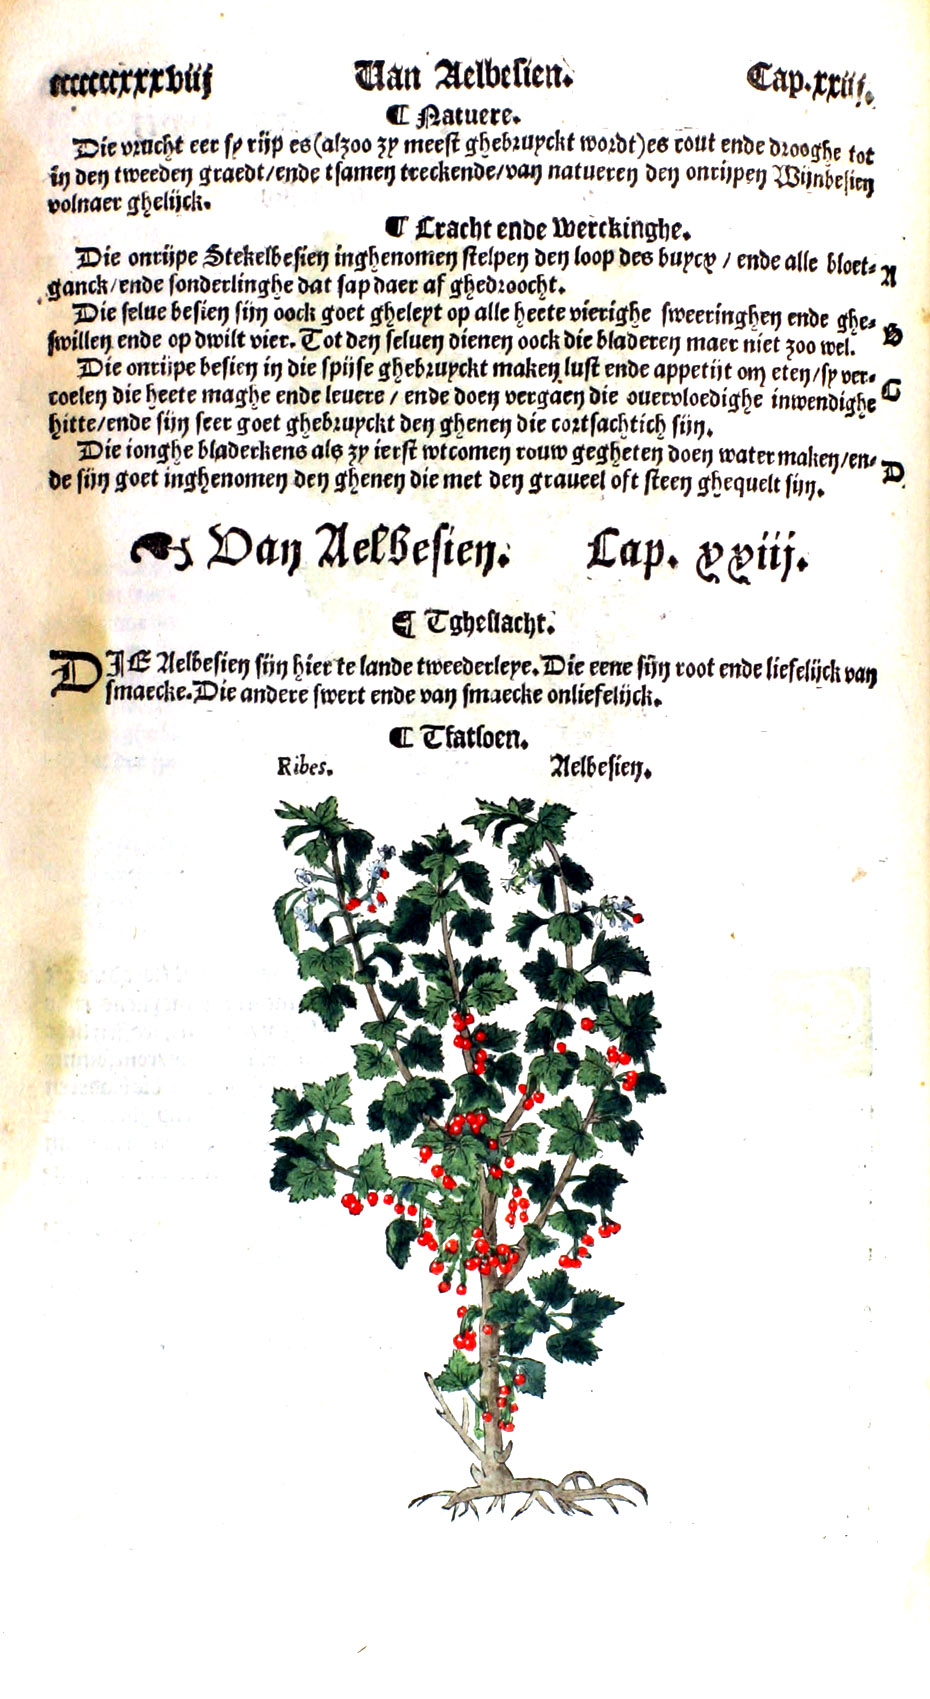 ccccccxxxviij Van Aelbesien. Cap.xxiij.
¶ Natuere.
Die vrucht eer sy rijp es (alzoo zy meest ghebruyckt wordt) es cout ende drooghe tot
in den tweeden graedt/ende tsamen treckende/van natueren den onrijpen Wijnbesien
volnaer ghelijck.
¶ Cracht ende Werckinghe.
Die onrijpe Stekelbesien inghenomen stelpen den loop des buycx / ende alle bloet- A
ganck/ende sonderlinghe dat sap daer af ghedroocht.
Die selue besien sijn oock goet gheleyt op alle heete vierighe sweeringhen ende ghe- B
swillen ende op dwilt vier. Tot den seluen dienen oock die bladeren maer niet zoo wel.
Die onrijpe besien in die spijse ghebruyckt maken lust ende appetijt om eten/sy ver- C
coelen die heete maghe ende leuere / ende doen vergaen die ouervloedighe inwendighe
hitte/ende sijn seer goet ghebruyckt den ghenen die cortsachtich sijn.
Die ionghe bladerkens als zy ierst wtcomen rouw gegheten doen water maken/en- D
de sijn goet inghenomen den ghenen die met den graueel oft steen ghequelt sijn.
Van Aelbesien. Cap. xxiij.
¶ Tgheslacht.
DIE Aelbesien sijn hier te lande tweederleye. Die eene sijn root ende liefelijck van
smaecke. Die andere swert ende van smaecke onliefelijck.
¶ Tfatsoen.
Ribes. Aelbesien.